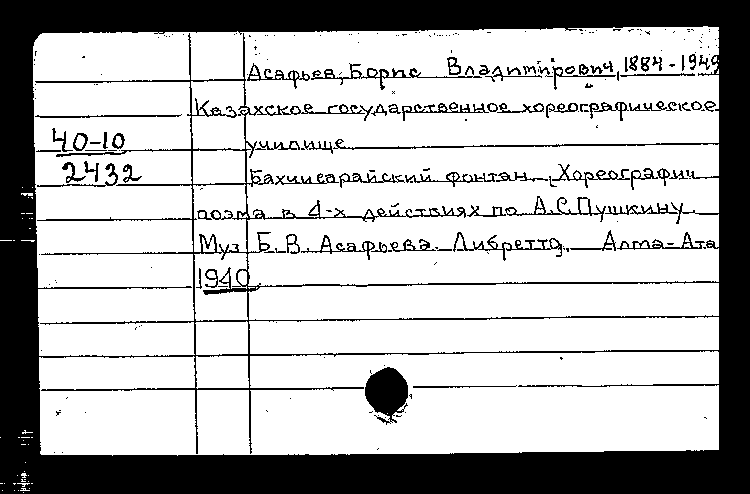 Асафьев, Борис Владимирович, 1884-1949
Казахское государственное хореографическое
40-10 училище
2432 Бахчисарайский фонтан. Хореографич
поэма в 4-х действиях по А.С.Пушкину.
Муз Б.В. Асафьева. Либретто. Алма-Ата
1940